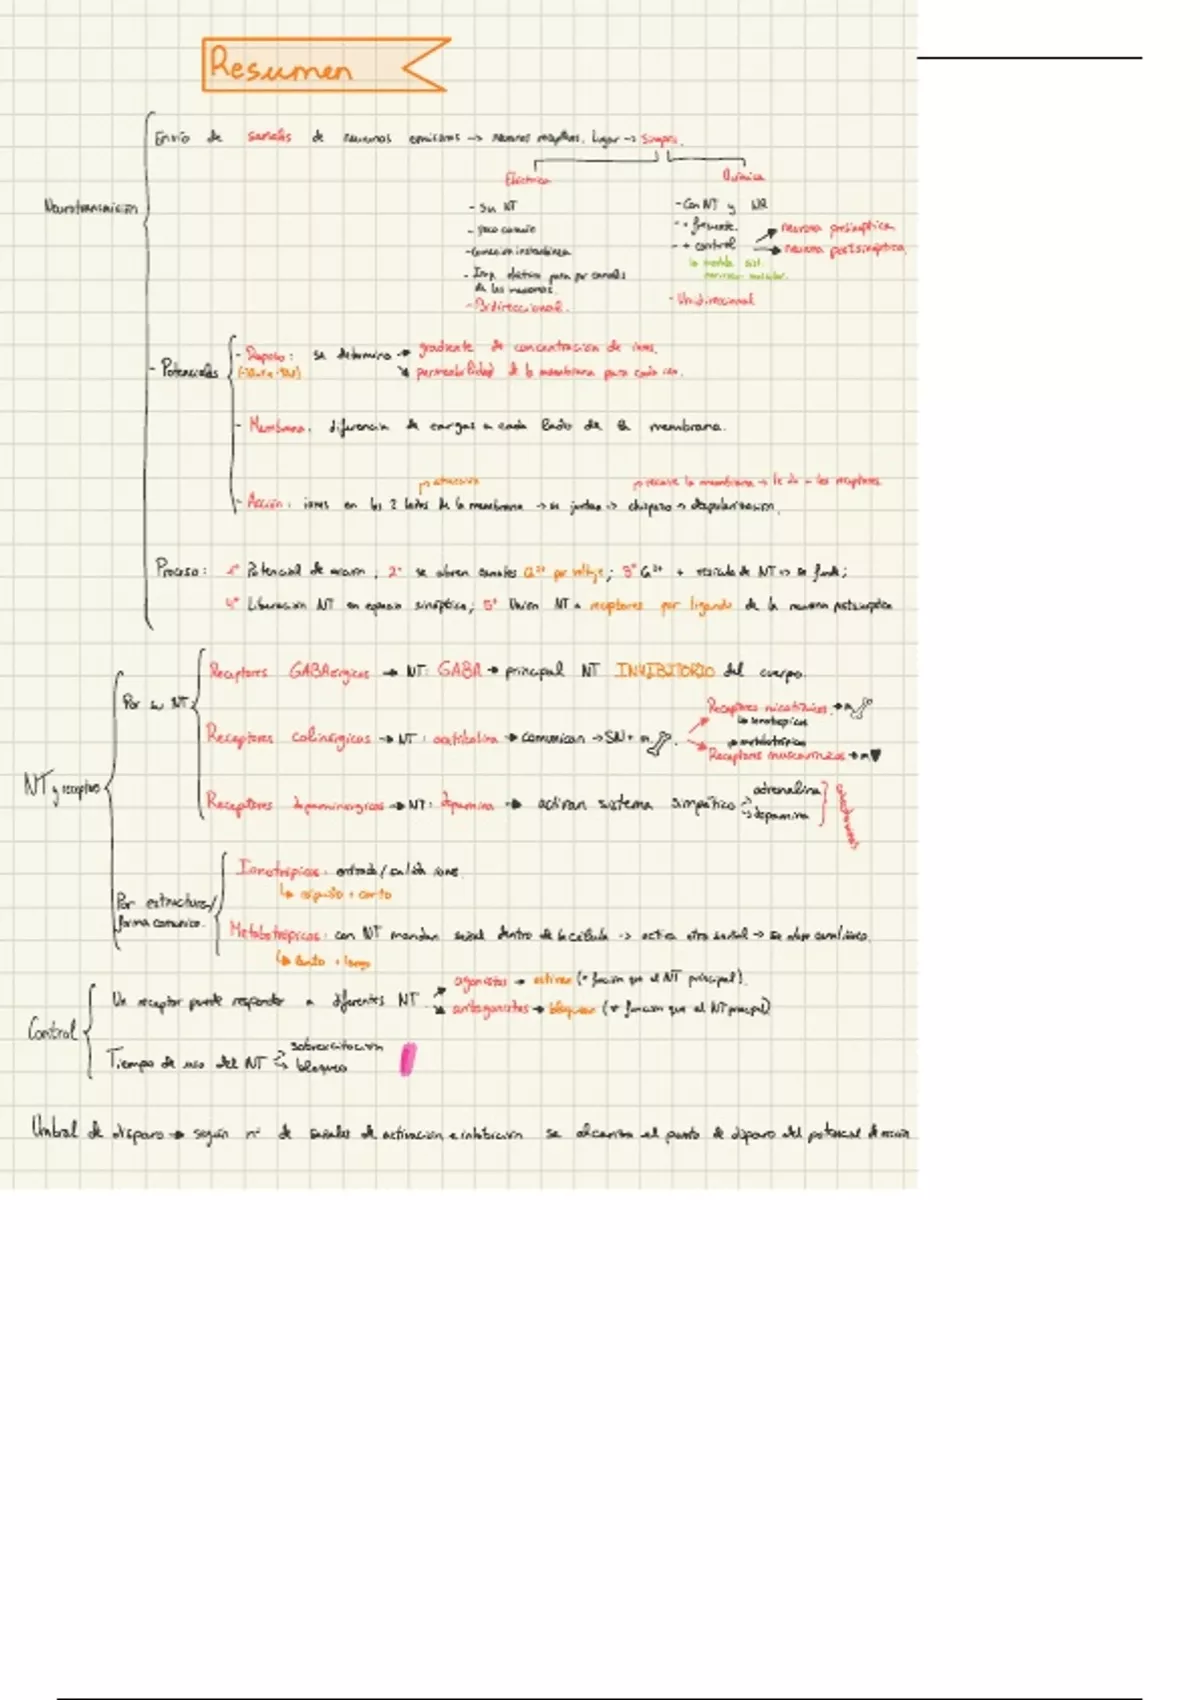 Resumen
Envío de señales de neuronas emisoras → neuronas receptoras. Lugar → Sinapsis.
Neurotransmisión
Eléctrica
- Sin NT
- poco común
- Conexión instantánea
- Imp. eléctrico pasa por canales
de las neuronas.
- Bidireccional.
Química
- Con NT y NR
- + frecuente.
- + control
neurona presináptica
neurona postsináptica
- Unidireccional
- Potenciales
- Reposo: se determina → gradiente de concentración de iones.
↘ permeabilidad de la membrana para cada ion.
- Membrana: diferencia de cargas a cada lado de la membrana.
atracción
recorre la membrana →
- Acción: iones en los 2 lados de la membrana → se juntan → chispazo → despolarización.
Proceso: 1º Potencial de acción; 2º se abren canales Ca²⁺ por voltaje; 3º Ca²⁺ + vesícula de NT → se funde;
4º Liberación NT en espacio sináptico; 5º Unión NT a receptores por ligando de la neurona postsináptica
NT y receptor
Por su NT:
Receptores GABAérgicos → NT: GABA → principal NT INHIBITORIO del cuerpo.
Receptores colinérgicos → NT: acetilcolina → comunican → SN + m
Receptores nicotínicos → m
↳ ionotrópicos
↳ metabotrópicos
Receptores muscarínicos → m♥
Receptores dopaminérgicos → NT: dopamina → activan sistema simpático
adrenalina
dopamina
Por estructura/
forma comunica.
Ionotrópicos: entrada/salida iones.
↳ rápido + corto
Metabotrópicos: con NT mandan señal dentro de la célula → activa otra señal → se abre canal iónico.
↳ lento + largo
Control
Un receptor puede responder a diferentes NT
agonistas → activan (= función que el NT principal).
antagonistas → bloquean (≠ función que el NT principal)
Tiempo de uso del NT
sobreexcitación
bloqueo
Umbral de disparo → según nº de señales de activación e inhibición se alcanza el punto de disparo del potencial de acción